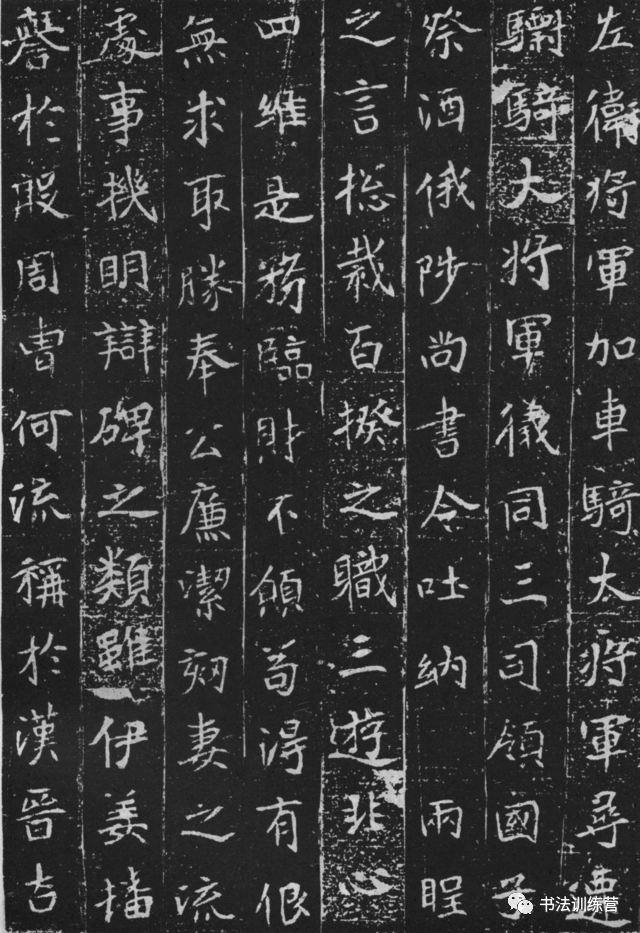 左衛将軍加車騎大將軍尋遷
驃騎大将軍儀同三司領國子
祭酒俄陟尚書令吐納 兩
之言揔裁百揆之職三遊北心
四維是務臨財不傾苟得有佷
無求取勝奉公廉潔剏妻之流
處事機明辯碑之類雖伊姜播
譽於殷周曹何流稱於漢晉古
书法训练营